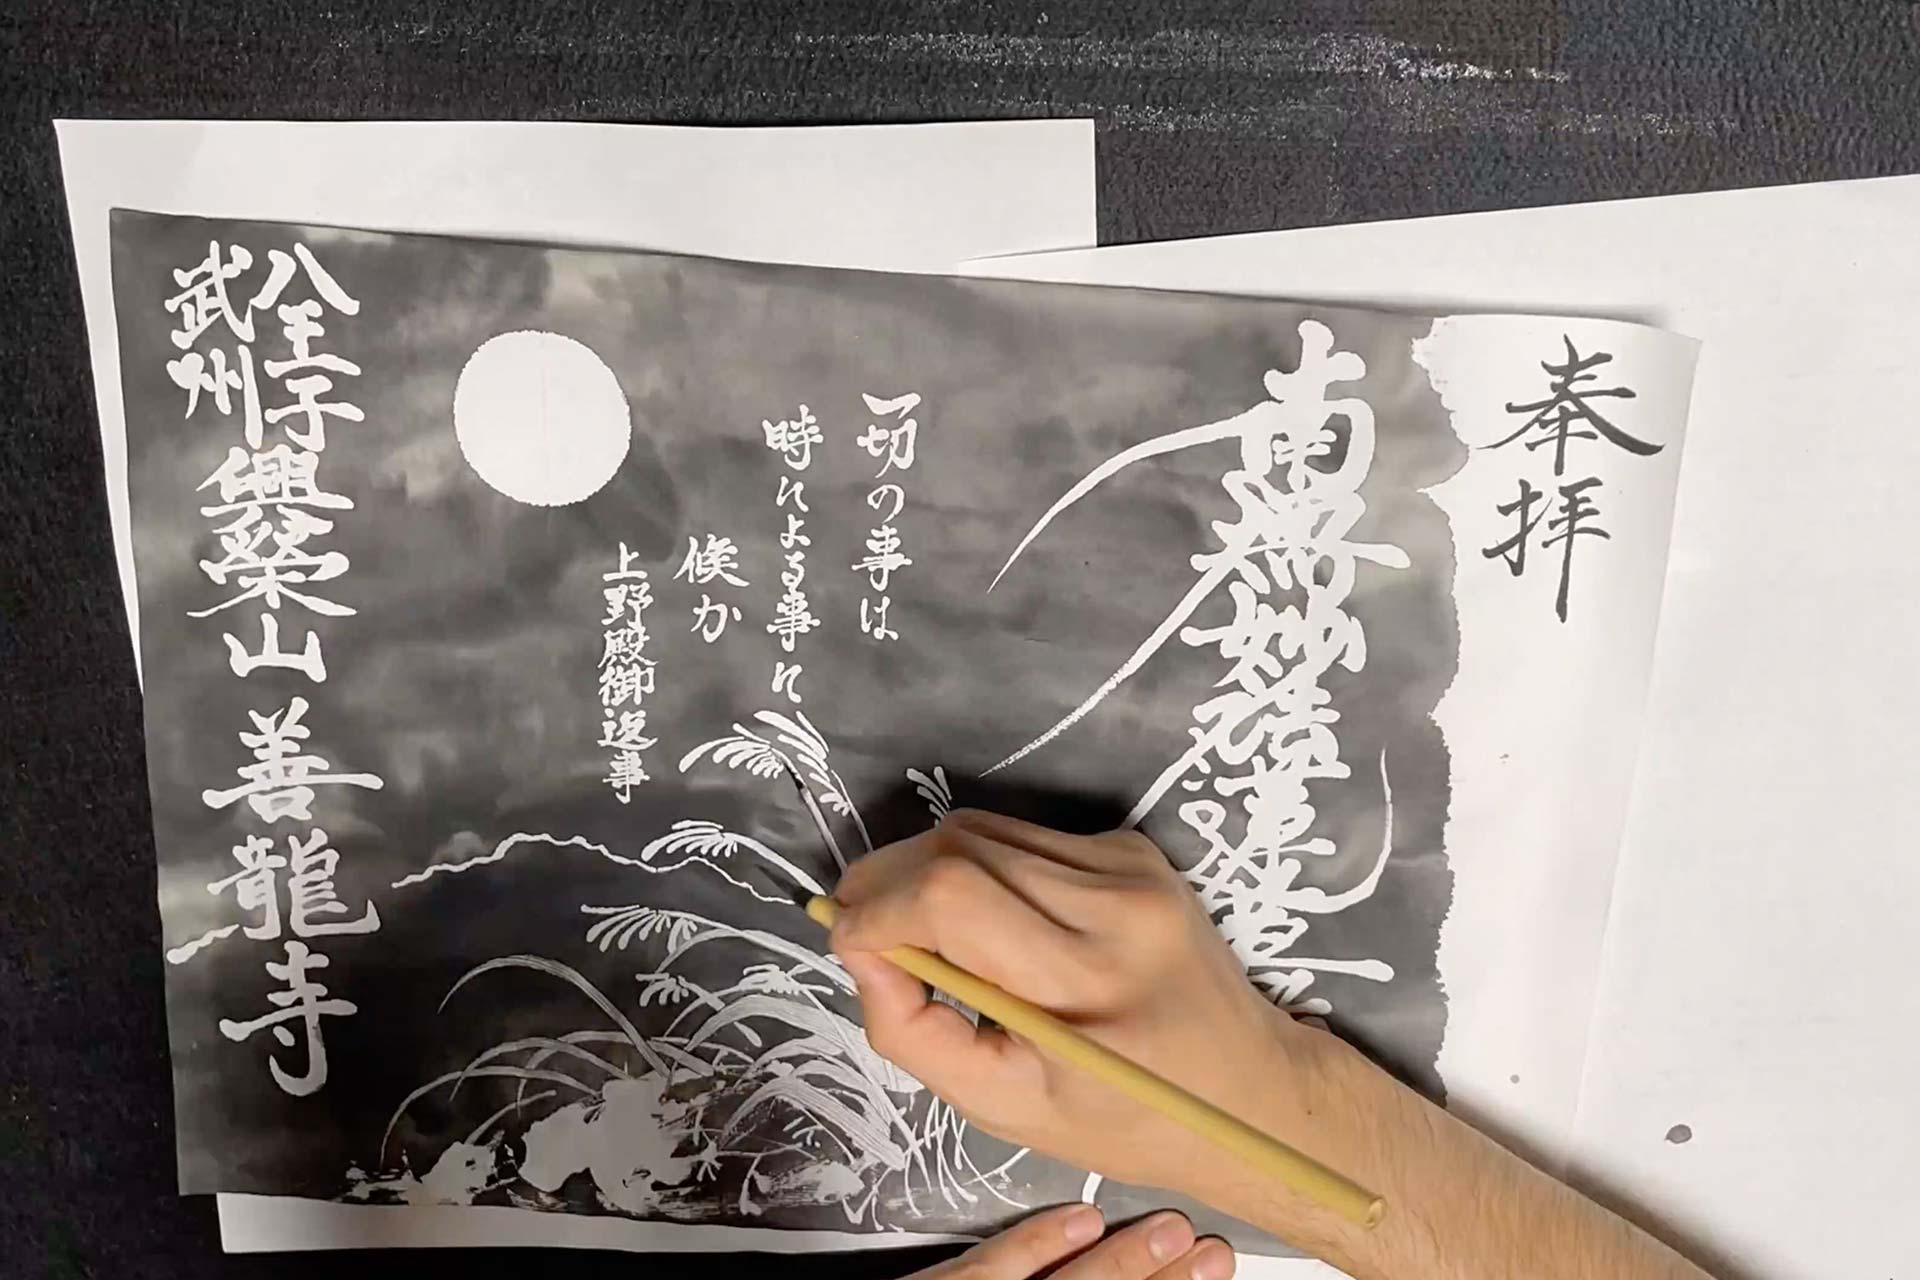 奉拝
南無妙法蓮華
一切の事は
時による事に
候か
上野殿御返事
八王子
武州
興榮山 善龍寺